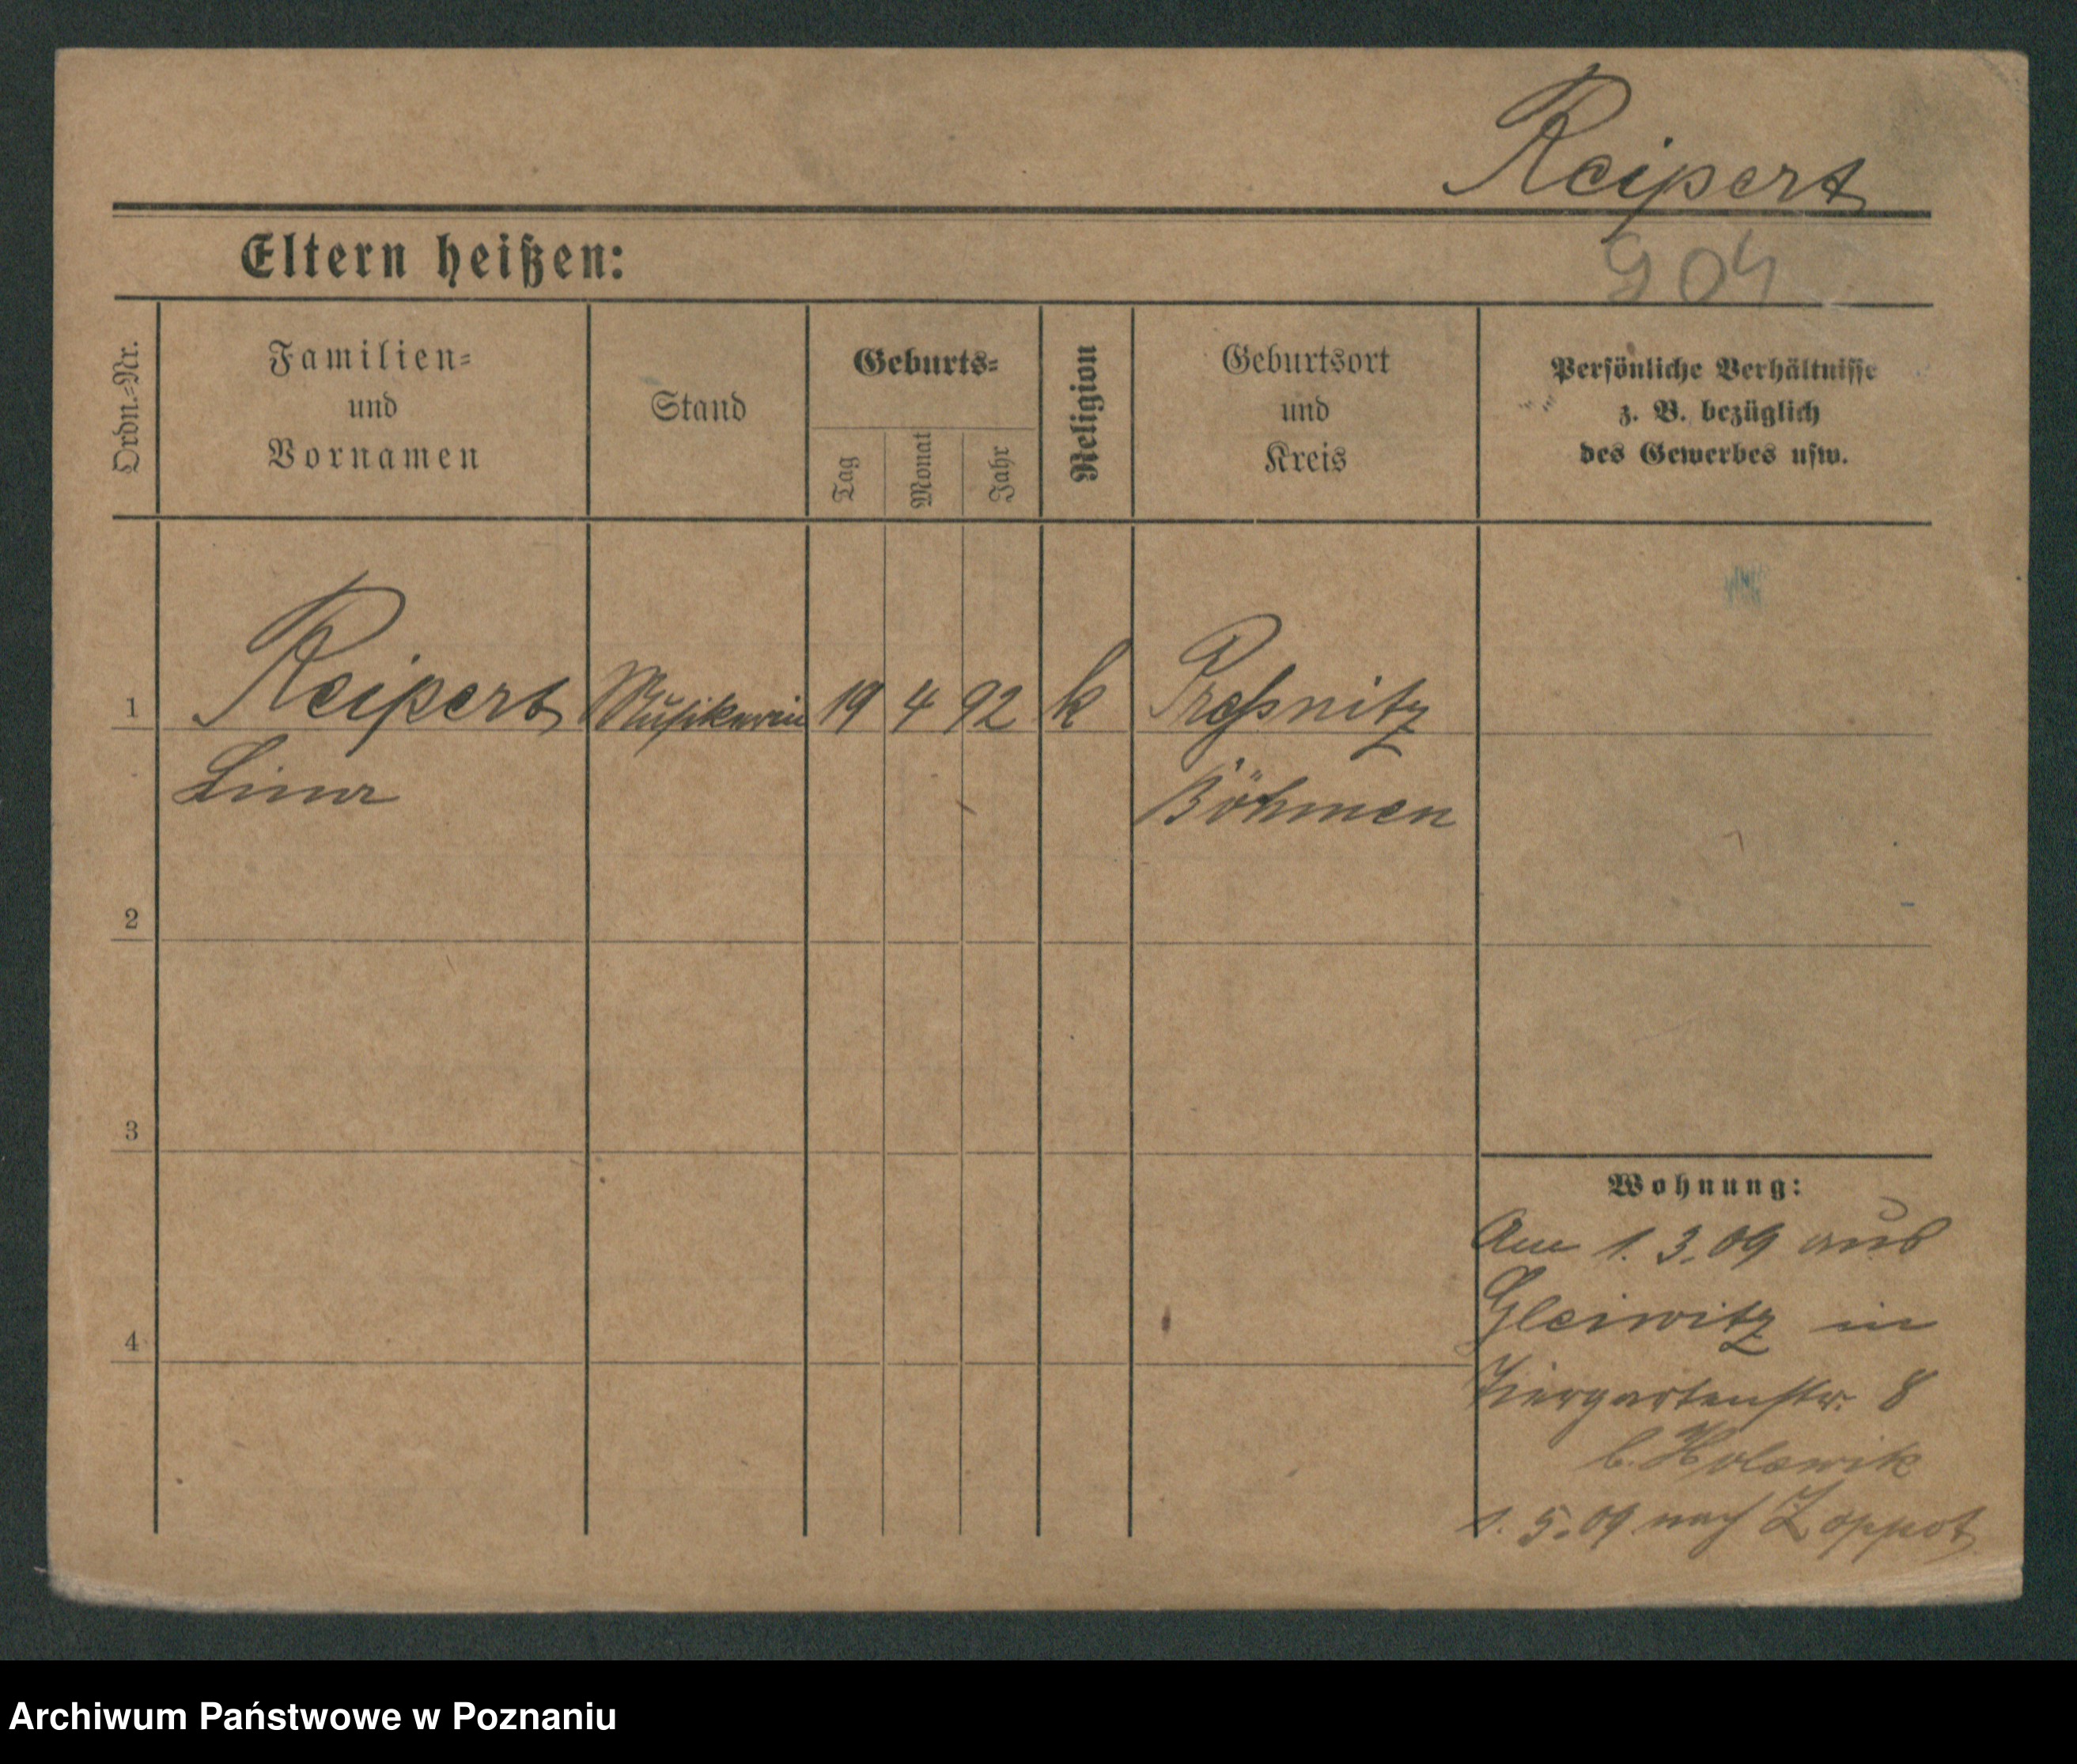 Reipert
Eltern heißen:
904
Ordn.=Nr.
Familien=
und
Vornamen
Stand
Geburts=
Tag
Monat
Jahr
Religion
Geburtsort
und
Kreis
Persönliche Verhältnisse
z. B. bezüglich
des Gewerbes usw.
1 Reipert Musikerin 19 4 92 k Preßnitz
Lina Böhmen
2
3
4
Wohnung:
Am 1. 3. 09 aus
Gleiwitz in
Tiergartenstr. 8
b.
1. 5. 09 nach Zoppot
Archiwum Państwowe w Poznaniu